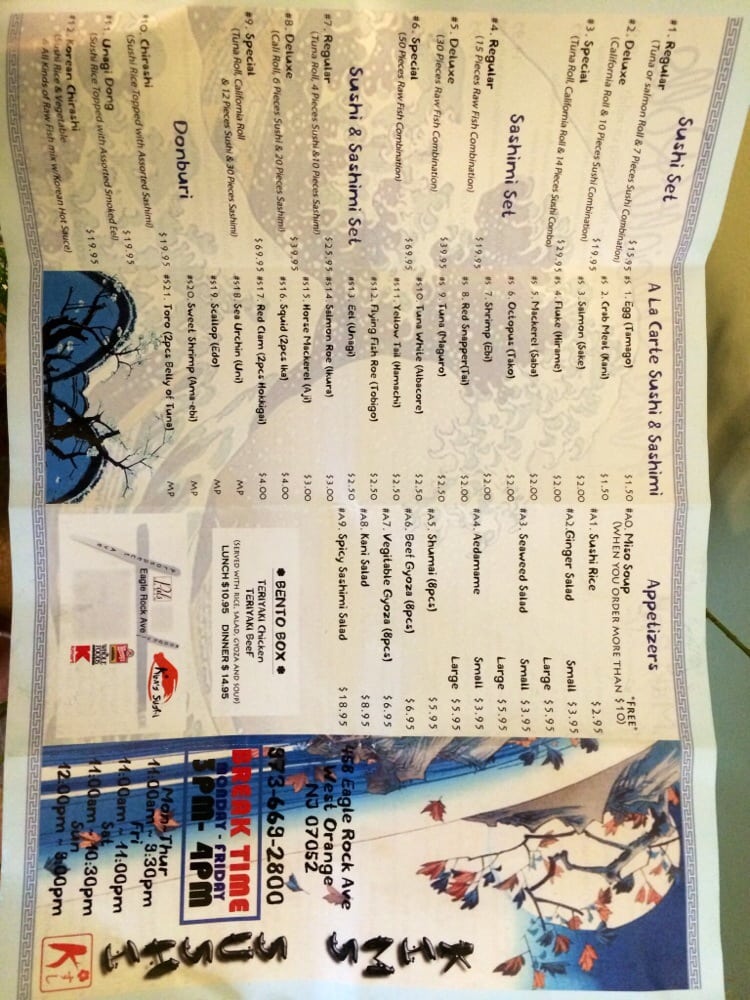 Sushi Set
#1. Regular
(Tuna or salmon Roll & 7 Pieces Sushi Combination)
$15.95
#2. Deluxe
(California Roll & 10 Pieces Sushi Combination)
$19.95
#3. Special
(Tuna Roll, California Roll & 14 Pieces Sushi Combo)
$29.95
Sashimi Set
#4. Regular
(15 Pieces Raw Fish Combination)
$19.95
#5. Deluxe
(30 Pieces Raw Fish Combination)
$39.95
#6. Special
(50 Pieces Raw Fish Combination)
$69.95
Sushi & Sashimi Set
#7. Regular
(Tuna Roll, 4 Pieces Sushi &10 Pieces Sashimi)
$25.95
#8. Deluxe
(Cali Roll, 6 Pieces Sushi & 20 Pieces Sashimi)
$39.95
#9. Special
(Tuna Roll, California Roll
& 12 Pieces Sushi & 30 Pieces Sashimi)
$69.95
Donburi
#10. Chirashi
(Sushi Rice Topped with Assorted Sashimi)
$19.95
#11. Unagi Dong
(Sushi Rice Topped with Assorted Smoked Eel)
$19.95
#12. Korean Chirashi
(Sushi Rice & Vegetable
& All Kinds of Raw Fish mix w/Korean Hot Sauce)
$19.95
A La Carte Sushi & Sashimi
#S 1. Egg (Tamago) $1.50
#S 2. Crab Meal (Kani) $1.50
#S 3. Salmon (Sake) $2.00
#S 4. Fluke (Hirame) $2.00
#S 5. Mackerel (Saba) $2.00
#S 6. Octopus (Tako) $2.00
#S 7. Shrimp (Ebi) $2.00
#S 8. Red Snapper(Tai) $2.00
#S 9. Tuna (Maguro) $2.50
#S10. Tuna White (Albacore) $2.50
#S11. Yellow Tail (Hamachi) $2.50
#S12. Flying Fish Roe (Tobigo) $2.50
#S13. Eel (Unagi) $2.50
#S14. Salmon Roe (Ikura) $3.00
#S15. Horse Mackerel (Aji) $3.00
#S16. Squid (2pcs Ika) $4.00
#S17. Red Clam (2pcs Hokkigai) $4.00
#S18. Sea Urchin (Uni) MP
#S19. Scallop (Edo) MP
#S20. Sweet Shrimp (Ama-ebi) MP
#S21. Toro (2pcs Belly of Tuna) MP
Appetizers
#A0. Miso Soup "FREE"
(WHEN YOU ORDER MORE THAN $10)
#A1. Sushi Rice $2.95
#A2.Ginger Salad Small $3.95
Large $5.95
#A3. Seaweed Salad Small $3.95
Large $5.95
#A4. Aedamame Small $3.95
Large $5.95
#A5. Shumai (8pcs) $5.95
#A6. Beef Gyoza (8pcs) $6.95
#A7. Vegitable Gyoza (8pcs) $6.95
#A8. Kani Salad $8.95
#A9. Spicy Sashimi Salad $18.95
* BENTO BOX *
TERIYAKI Chicken
TERIYAKI Beef
(SERVED WITH RICE, SALAD, GYOZA AND SOUP)
LUNCH $10.95 DINNER $14.95
Pals
Eagle Rock Ave
Kim's Sushi
WHOLE FOODS
K
KIMS
SUSHI
458 Eagle Rock Ave
West Orange
NJ 07052
973-669-2800
BREAK TIME
MONDAY - FRIDAY
3PM- 4PM
Mon~Thur
11:00am ~ 9:30pm
Fri
11:00am ~ 11:00pm
Sat
11:00am ~ 10:30pm
Sun
12:00pm ~ 9:00pm